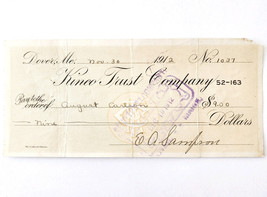 Dover, Me. Nov. 30 1912 No. 1037
Kineo Trust Company 52-163
Pay to the order of August $9.00
Nine Dollars
E. A. Sampson